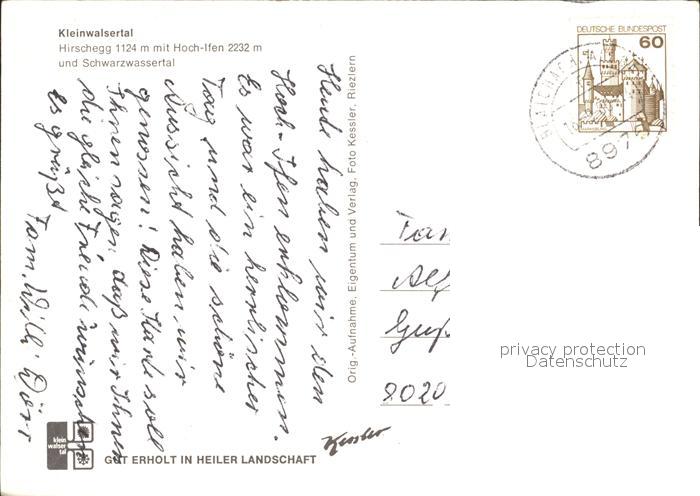 Kleinwalsertal
Hirschegg 1124 m mit Hoch-Ifen 2232 m
und Schwarzwassertal
Heute haben wir den
Hoch-Ifen erklommen.
Es war ein herrlicher
Tag und die schöne
Aussicht haben wir
genossen! Diese Karte soll
Ihnen sagen, daß wir Ihnen
die gleiche Freude wünschen
es grüßt
Fam. Willi
Orig.-Aufnahme, Eigentum und Verlag, Foto Kessler, Riezlern
DEUTSCHE BUNDESPOST
60
8970
Fam
Alf
8020
privacy protection
Datenschutz
Kessler
klein
walser
tal
GUT ERHOLT IN HEILER LANDSCHAFT